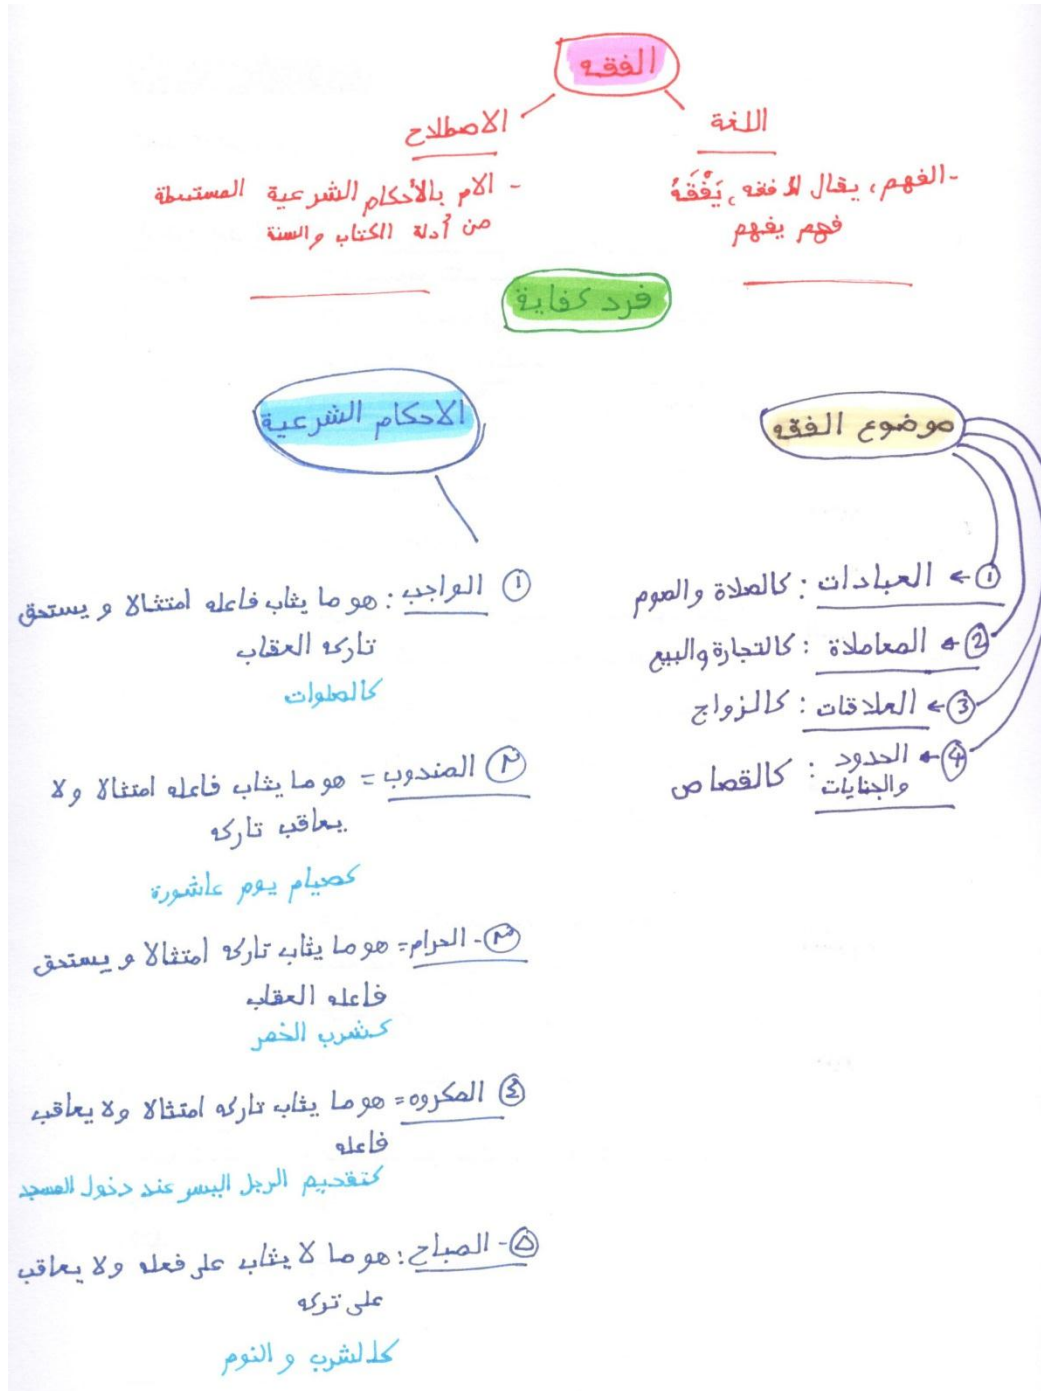 الفقه
اللغة
-الفهم، يقال فقه، يَفْقَهُ
فهم يفهم
الاصطلاح
- الام بالأحكام الشرعية المستبطة
من أدلة الكتاب والسنة
فرد كفاية
موضوع الفقه
① ← العبادات : كالصلاة والصوم
② ← المعاملاة : كالتجارة والبيع
③ ← العلاقات : كالزواج
④ ← الحدود
والجنايات : كالقصاص
الاحكام الشرعية
١ الواجب : هو ما يثاب فاعله امتثالا و يستحق
تاركه العقاب
كالصلوات
٢ المندوب = هو ما يثاب فاعله امتثالا ولا
يعاقب تاركه
كصيام يوم عاشورة
٣- الحرام = هو ما يثاب تاركه امتثالا و يستحق
فاعله العقاب
كشرب الخمر
٤ المكروه = هو ما يثاب تاركه امتثالا ولا يعاقب
فاعله
كتقديم الرجل اليسر عند دخول المسجد
٥- المباح : هو ما لا يثاب على فعله ولا يعاقب
على تركه
كالشرب و النوم